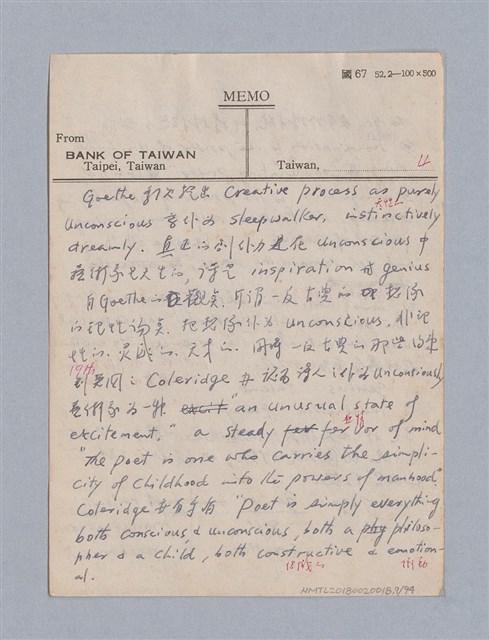 國 67 52.2—100×500
MEMO
From
BANK OF TAIWAN
Taipei, Taiwan
Taiwan, 4
Goethe 初次提出 Creative process as purely
unconscious 當作為 sleepwalker, instinctively
dreamly. 真正的創作力是在 unconscious 中
藝術家是天生的, 詩是 inspiration 或 genius
自 Goethe 的觀點, 可謂一反古典的 把
的理性論點, 把 作為 unconscious, 非理
性的、靈感的、天才的. 同時一反古典的
19th
到英國: Coleridge 並認為詩人 作為 Unconsciously
藝術家為一種 excit "an unusual state of
excitement," a steady fer fervor of mind
"The poet is one who carries the simpli-
city of childhood into the powers of manhood"
Coleridge 也有 "Poet is simply everything
both conscious & unconscious, both a phy philoso-
pher & a child, both constructive & emotion-
al.
衝動
NMTL20180020018.9/94